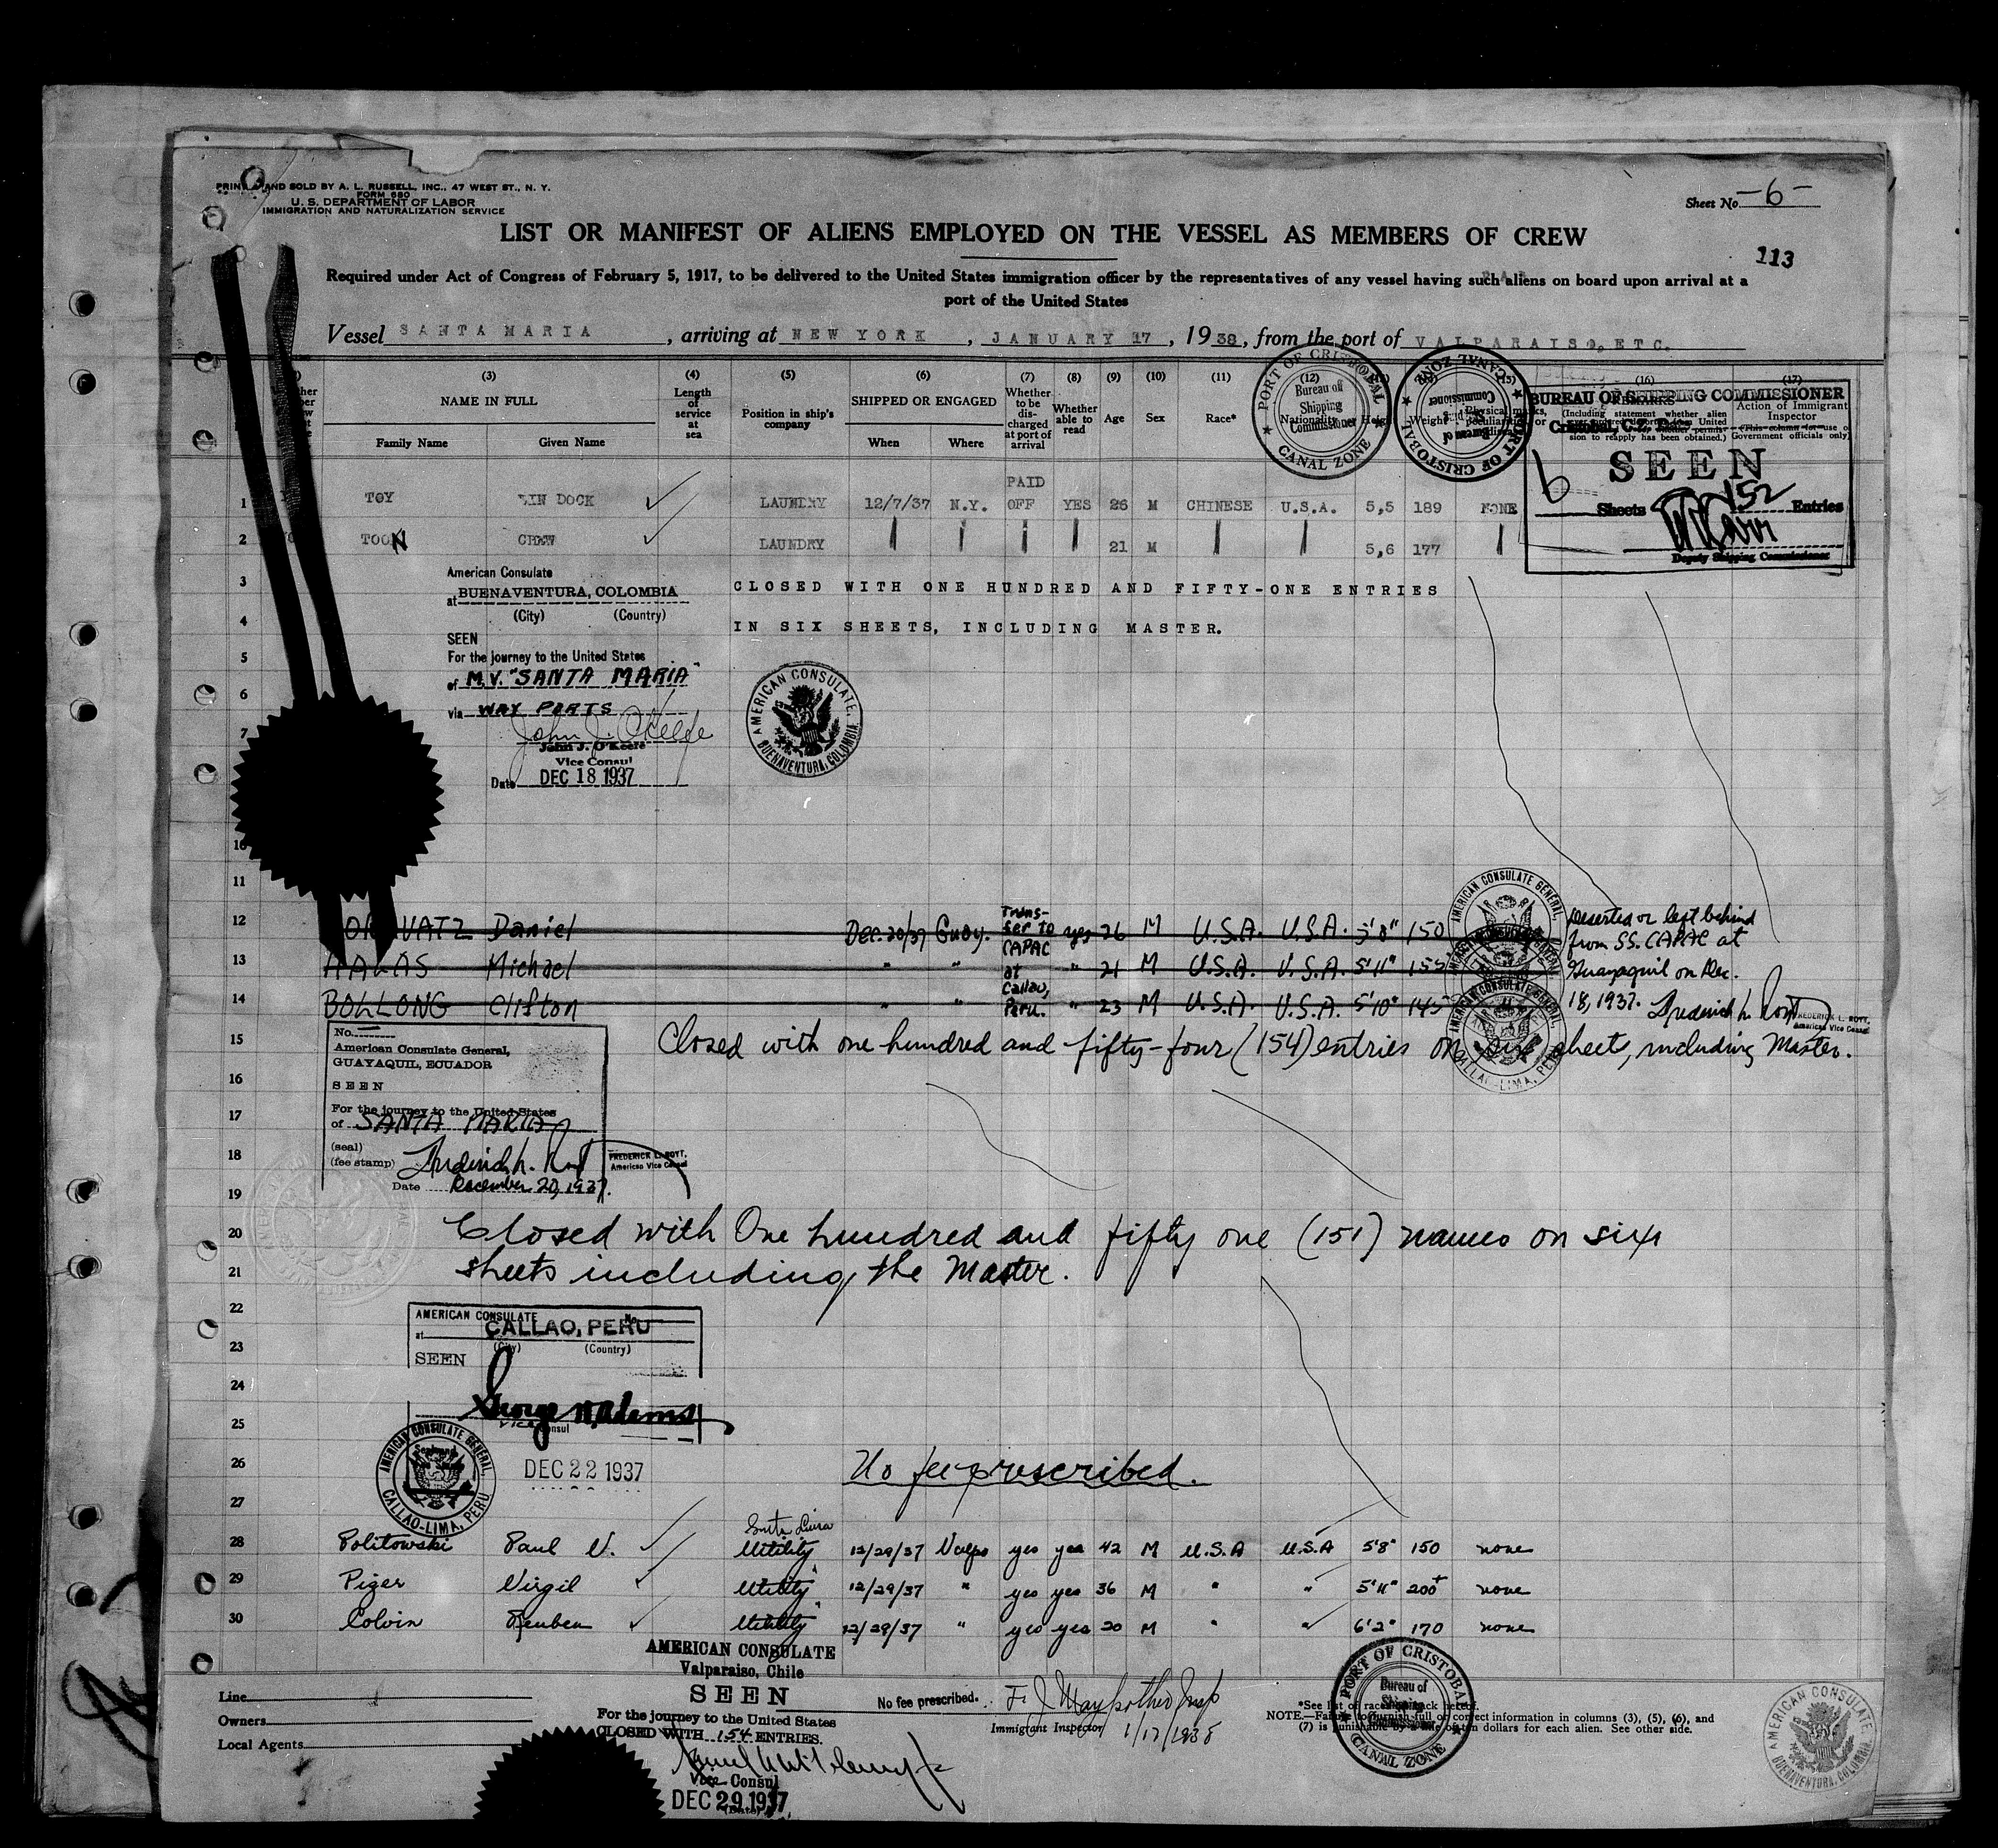 AND SOLD BY A. L. RUSSELL, INC., 47 WEST ST., N. Y.
FORM 680
U. S. DEPARTMENT OF LABOR
IMMIGRATION AND NATURALIZATION SERVICE
Sheet No. -6-
LIST OR MANIFEST OF ALIENS EMPLOYED ON THE VESSEL AS MEMBERS OF CREW
113
Required under Act of Congress of February 5, 1917, to be delivered to the United States immigration officer by the representatives of any vessel having such aliens on board upon arrival at a
port of the United States
Vessel SANTA MARIA, arriving at NEW YORK, JANUARY 17, 1938, from the port of VALPARAISO, ETC.
(3) (4) (5) (6) (7) (8) (9) (10) (11) (12) (15) (16) (17)
NAME IN FULL
Family Name Given Name
Length of service at sea
Position in ship's company
SHIPPED OR ENGAGED
When Where
Whether to be discharged at port of arrival
Whether able to read
Age Sex Race*
Weight
Physical marks, peculiarities or
(Including statement whether alien
sion to reapply has been obtained.)
Action of Immigrant Inspector
(This column for use of Government officials only)
PORT OF CRISTOBAL
Bureau of Shipping Commissioner
CANAL ZONE
PORT OF CRISTOBAL
Bureau of Shipping Commissioner
CANAL ZONE
BUREAU OF SHIPPING COMMISSIONER
Cristobal, C.Z.
SEEN
6 Sheets 152 Entries
Deputy Shipping Commissioner
1 TOY DOCK LAUNDRY 12/7/37 N.Y. PAID OFF YES 26 M CHINESE U.S.A. 5,5 189 NONE
2 TOON CHEW LAUNDRY 21 M 5,6 177
3 CLOSED WITH ONE HUNDRED AND FIFTY-ONE ENTRIES
4 IN SIX SHEETS, INCLUDING MASTER.
American Consulate
at BUENAVENTURA, COLOMBIA
(City) (Country)
SEEN
For the journey to the United States
of M.V. "SANTA MARIA"
via WAY PORTS
John J. O'Keefe
John J. O'Keefe
Vice Consul
Date DEC 18 1937
AMERICAN CONSULATE, BUENAVENTURA, COLOMBIA
5
6
7
10
11
12 Daniel Dec. 20/37 Guay. Transfer to CAPAC at Callao, Peru. yes 26 M U.S.A. U.S.A. 5'8" 150
13 Michael " " " 21 M U.S.A. U.S.A. 5'11" 155
14 BOLLONG Clifton " " " 23 M U.S.A. U.S.A. 5'10" 145
AMERICAN CONSULATE GENERAL,
Deserted or left behind
from SS. CAPAC at
Guayaquil on Dec.
18, 1937.
FREDERICK L. ROYT,
American Vice Consul
15 Closed with one hundred and fifty-four (154) entries on six sheet, including Master.
CALLAO-LIMA, PERU
No.
American Consulate General,
GUAYAQUIL, ECUADOR
SEEN
For the journey to the United States
of SANTA MARIA
(seal)
(fee stamp)
FREDERICK L. ROYT,
American Vice Consul
Date December 20, 1937.
16
17
18
19
20 Closed with One hundred and fifty one (151) names on six
21 sheets including the Master.
22
23
24
25
AMERICAN CONSULATE
at CALLAO, PERU
(City) (Country)
SEEN
Vice Consul
AMERICAN CONSULATE GENERAL, CALLAO-LIMA, PERU
DEC 22 1937
26 No fee prescribed.
27
Santa Luisa
28 Politowski Paul V. Utility 12/29/37 Valpo yes yes 42 M U.S.A U.S.A 5'8" 150 none
29 Piger Virgil Utility 12/29/37 " yes yes 36 M " " 5'11" 200+ none
30 Colvin Reuben Utility 12/29/37 " yes yes 20 M " " 6'2" 170 none
AMERICAN CONSULATE
Valparaiso, Chile
SEEN
For the journey to the United States
CLOSED WITH 154 ENTRIES.
Vice Consul
DEC 29 1937
(Date)
Line
Owners
Local Agents
No fee prescribed.
Immigrant Inspector 1/17/1938
PORT OF CRISTOBAL
Bureau of Shipping
CANAL ZONE
*See list of races on back hereof.
NOTE.—Failure to furnish full or correct information in columns (3), (5), (6), and
(7) is punishable by a fine of ten dollars for each alien. See other side.
AMERICAN CONSULATE, BUENAVENTURA, COLOMBIA